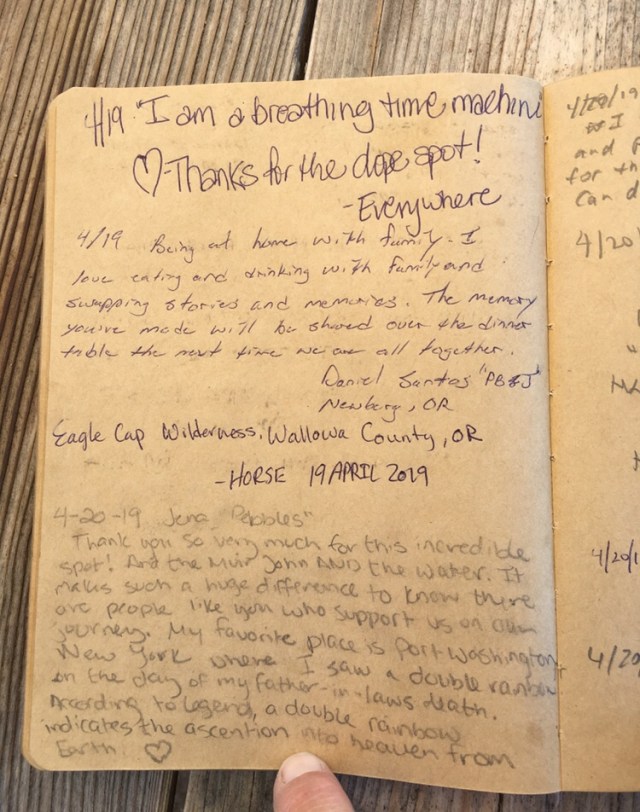 4/19 "I am a breathing time machine
♡-Thanks for the dope spot!
-Everywhere
4/19 Being at home with family. I
love eating and drinking with family and
swapping stories and memories. The memory
you've made will be shared over the dinner
table the next time we are all together.
Daniel Santos "PB&J"
Newberg, OR
Eagle Cap Wilderness, Wallowa County, OR
-HORSE 19 APRIL 2019
4-20-19 Jena Pebbles"
Thank you so very much for this incredible
spot! And the Muir John AND the water. It
makes such a huge difference to know there
are people like you who support us on our
journey. My favorite place is Port Washington
New York where I saw a double rainbow
on the day of my father-in-laws death.
According to legend, a double rainbow
indicates the ascention into heaven from
Earth. ♡
4/20/19
I
and
for th
can d
4/20
4/20/1
4/20